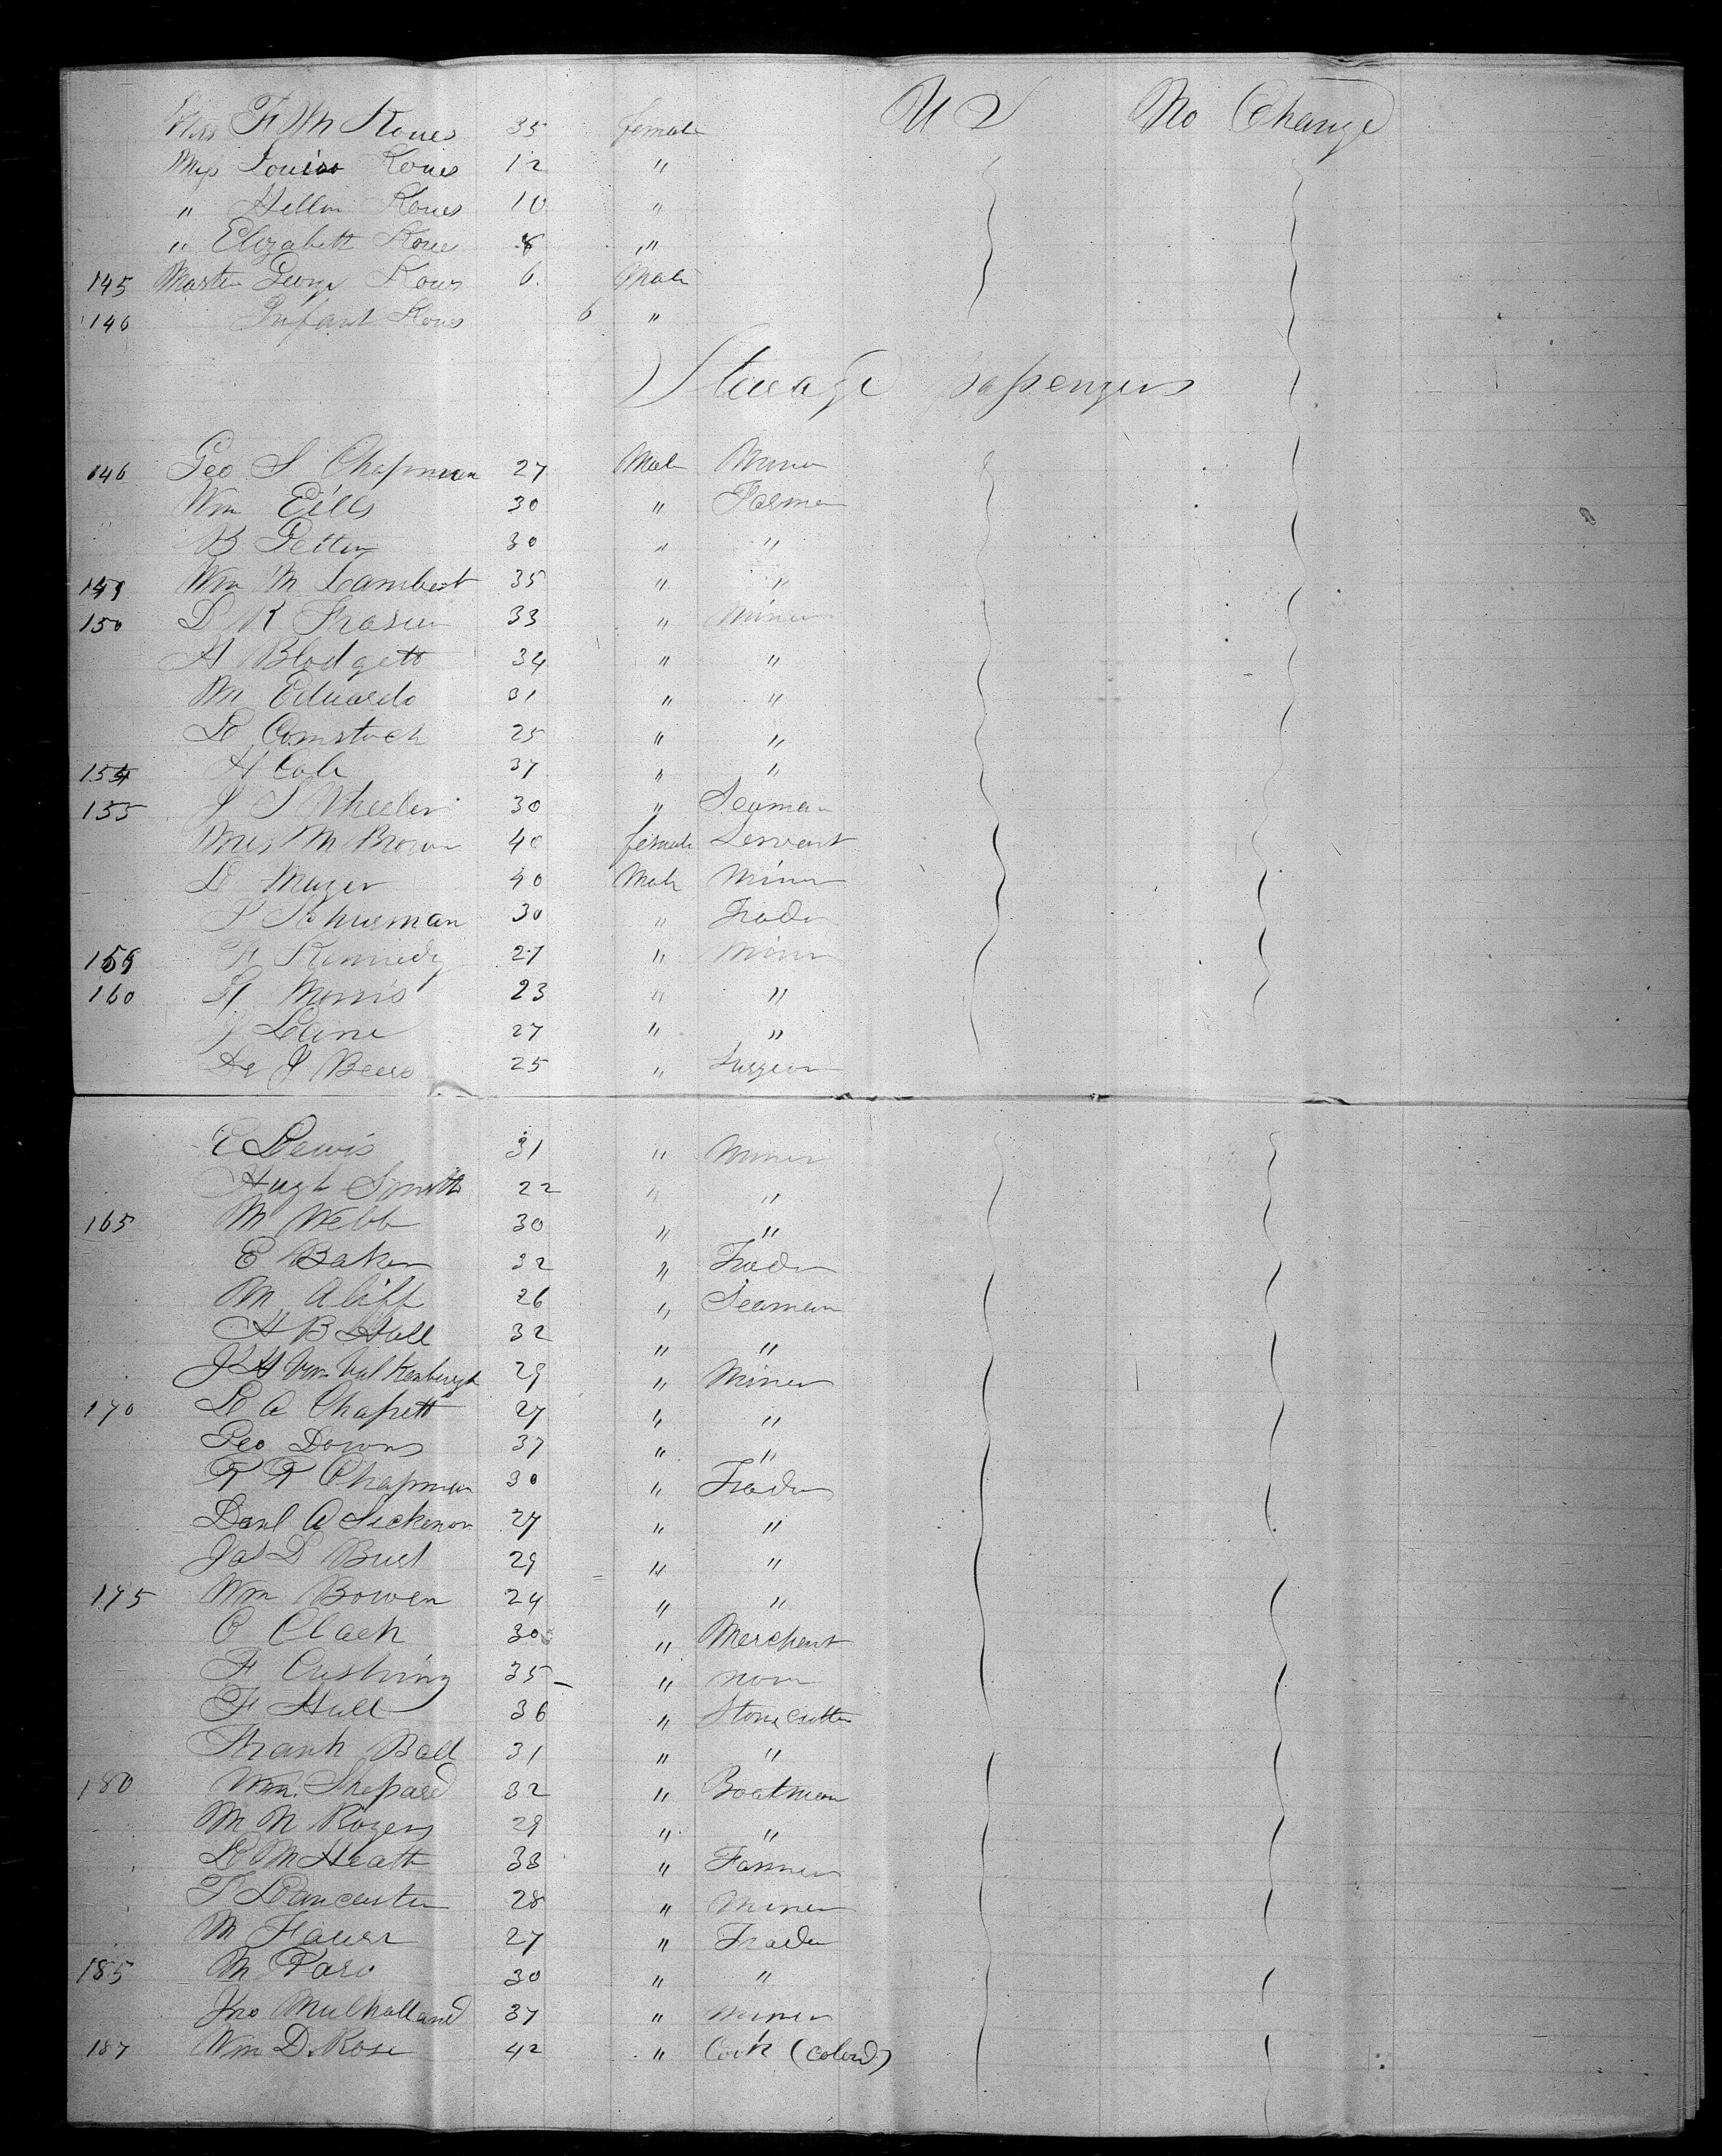 Mrs F M Koues 35 female U S No Change
Miss Louisa Koues 12 "
" Hellen Koues 10 "
" Elizabeth Koues 8 "
145 Master George Koues 6 Male
146 Infant Koues 6 "
Steerage passengers
146 Geo S Chapman 27 Male Miner
Wm Eells 30 " Farmer
B 30 " "
149 Wm M Lambert 35 " "
150 L K Frasier 33 " Miner
H Blodgett 34 " "
M Edwards 31 " "
L Comstock 25 " "
154 H Cole 37 " "
155 J S Wheeler 30 " Seaman
Mrs M Brown 40 female Servant
L Mazer 40 Male Miner
30 " Trader
159 F Kennedy 27 " Miner
160 H Morris 23 " "
J Laine 27 " "
Dr J Beers 25 " Surgeon
E Lewis 31 " Miner
Hugh Smith 22 " "
165 M Webb 30 " "
E Baker 32 " Trader
M Aliff 26 " Seaman
H B Hall 32 " "
J H Van Valkenburgh 29 " Miner
170 L A Chapett 27 " "
Geo Downs 37 " "
F F Chapman 30 " Trader
Danl A Sickenor 27 " "
Jas D Burt 29 " "
175 Wm Bowen 24 " "
O Clach 30 " Merchant
F Cushing 35 " none
F Hull 36 " Stone cutter
Frank Ball 31 " "
180 Wm. Shepard 32 " Boatman
M N Rogers 29 " "
L M Heath 33 " Farmer
T Lancaster 28 " Miner
M Hauer 27 " Trader
185 M Faro 30 " "
Jno Mulholland 37 " Miner
187 Wm D. Rose 42 " Cook (colord)